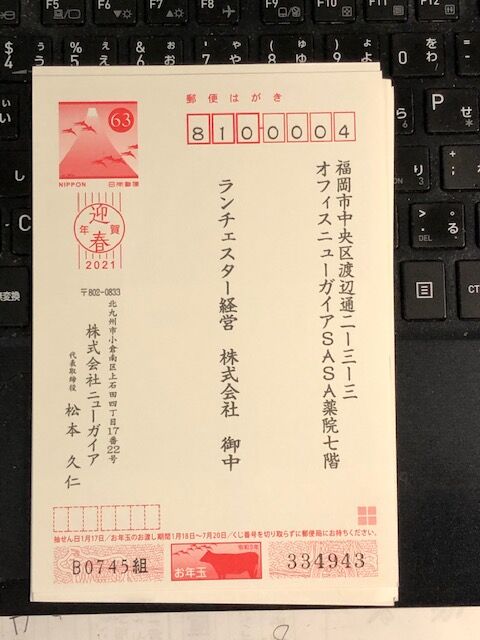 郵便はがき
63
NIPPON 日本郵便
8100004
迎春
年賀
2021
福岡市中央区渡辺通二ー三ー三
オフィスニューガイアSASA薬院七階
ランチェスター経営 株式会社 御中
〒802-0833
北九州市小倉南区上石田四丁目17番22号
株式会社ニューガイア
代表取締役 松本 久仁
抽せん日1月17日/お年玉のお渡し期間1月18日〜7月20日/くじ番号を切り取らずに郵便局にお持ちください。
B0745組
令和3年
お年玉
334943